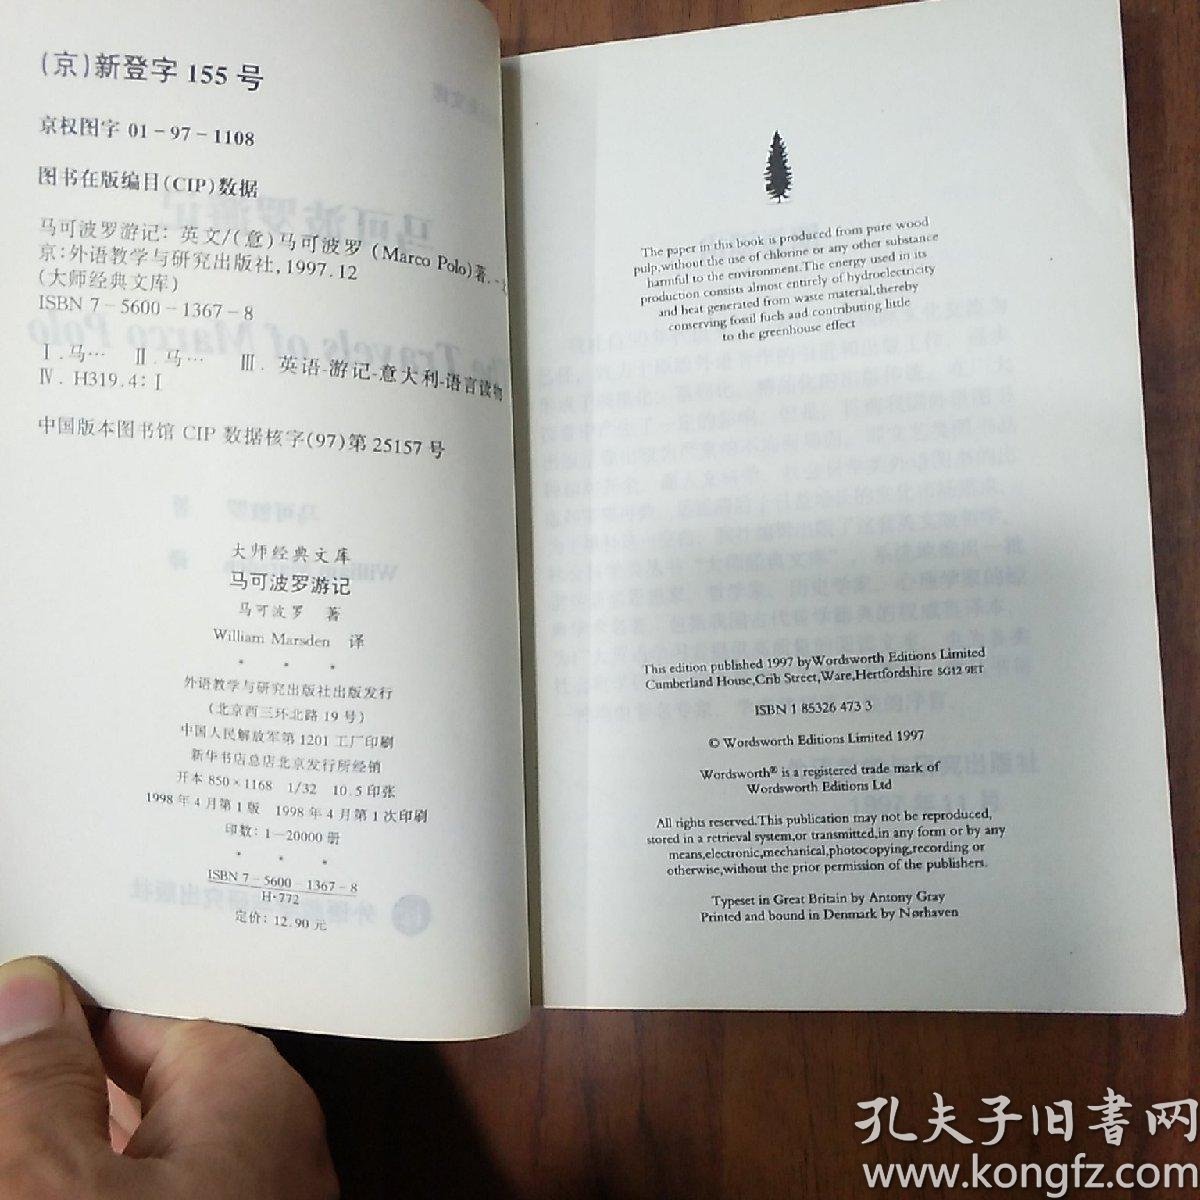 (京)新登字 155 号
京权图字 01-97-1108
图书在版编目(CIP)数据
马可波罗游记：英文/(意)马可波罗 (Marco Polo)著.-
京：外语教学与研究出版社,1997.12
(大师经典文库)
ISBN 7-5600-1367-8
Ⅰ.马… Ⅱ.马… Ⅲ.英语-游记-意大利-语言读物
Ⅳ.H319.4：Ⅰ
中国版本图书馆 CIP 数据核字(97)第 25157 号
大师经典文库
马可波罗游记
马可波罗 著
William Marsden 译
* * *
外语教学与研究出版社出版发行
(北京西三环北路 19 号)
中国人民解放军第 1201 工厂印刷
新华书店总店北京发行所经销
开本 850×1168 1/32 10.5 印张
1998 年 4 月第 1 版 1998 年 4 月第 1 次印刷
印数：1—20000 册
* * *
ISBN 7-5600-1367-8
H·772
定价：12.90 元
The paper in this book is produced from pure wood
pulp,without the use of chlorine or any other substance
harmful to the environment.The energy used in its
production consists almost entirely of hydroelectricity
and heat generated from waste material,thereby
conserving fossil fuels and contributing little
to the greenhouse effect
This edition published 1997 by Wordsworth Editions Limited
Cumberland House,Crib Street,Ware,Hertfordshire SG12 9ET
ISBN 1 85326 473 3
© Wordsworth Editions Limited 1997
Wordsworth® is a registered trade mark of
Wordsworth Editions Ltd
All rights reserved.This publication may not be reproduced,
stored in a retrieval system,or transmitted,in any form or by any
means,electronic,mechanical,photocopying,recording or
otherwise,without the prior permission of the publishers.
Typeset in Great Britain by Antony Gray
Printed and bound in Denmark by Nørhaven
孔夫子旧書网
www.kongfz.com